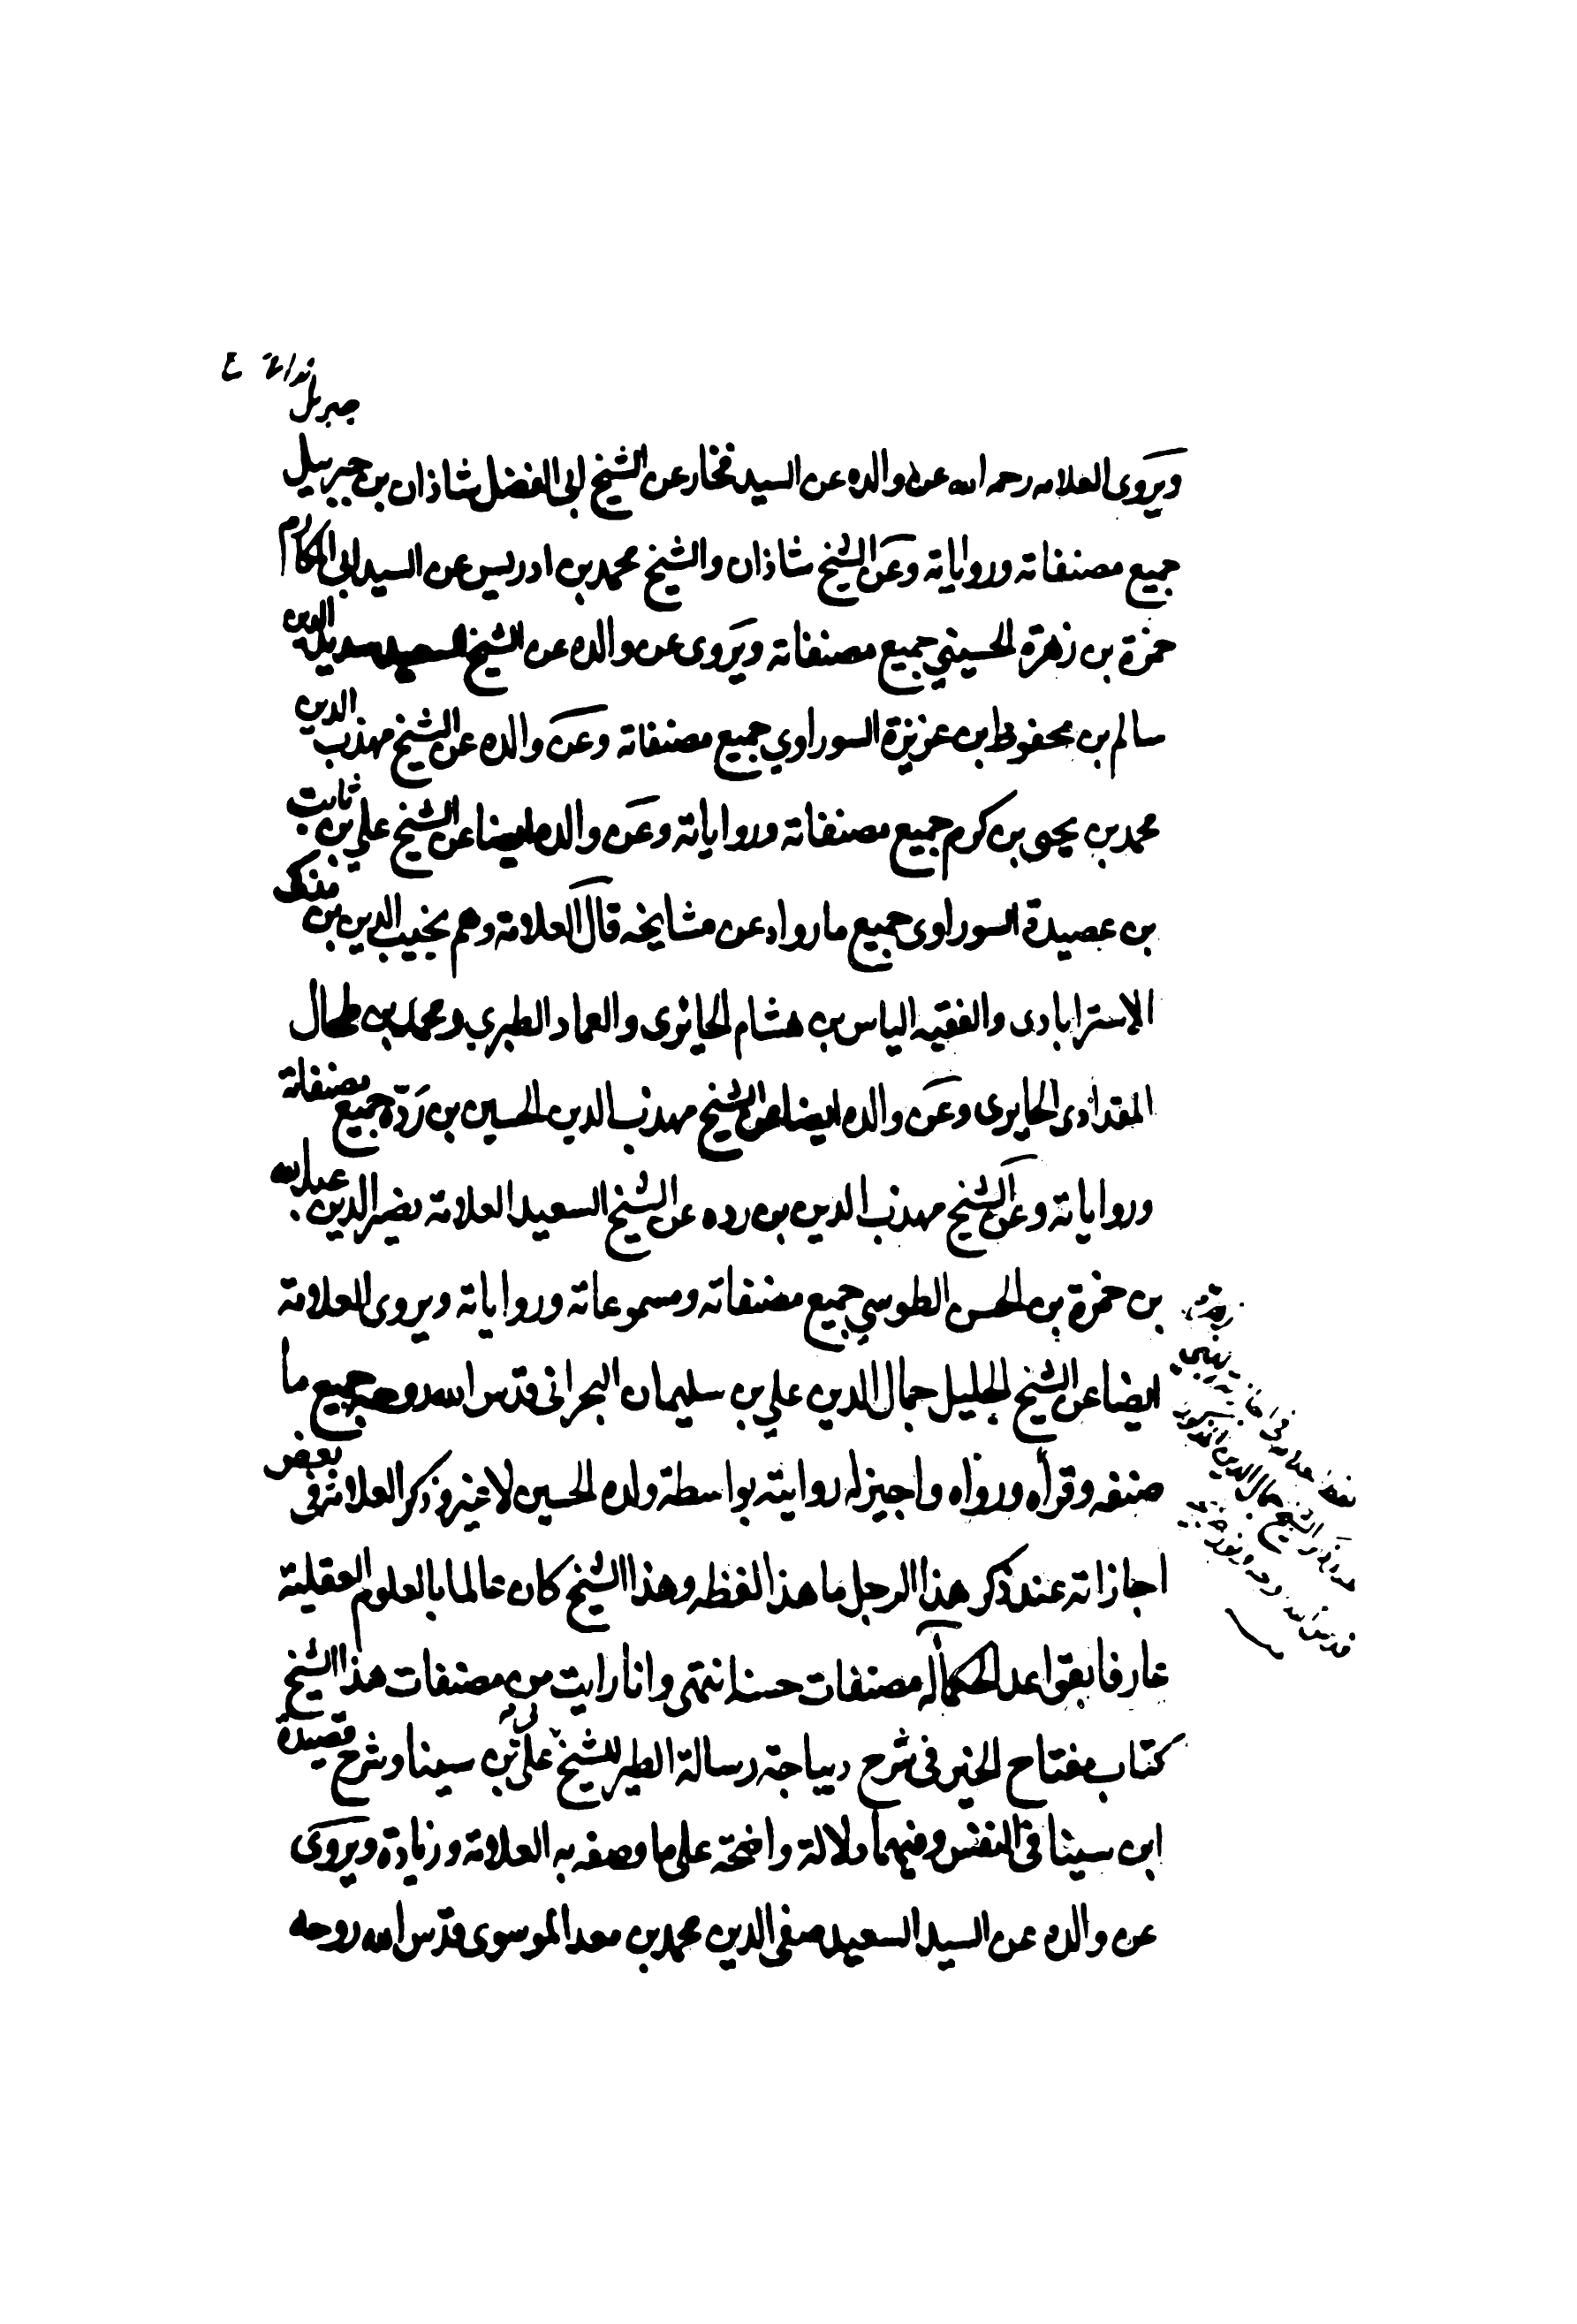 جبرئيل
ويروى العلامه رحمه الله عن والده عن السيد فخار عن الشيخ ابى الفضل شاذان بن جبرييل
جميع مصنفاته ورواياته وعن الشيخ شاذان والشيخ محمد بن ادريس عن السيد ابى المكارم
حمزة بن زهرة الحسيني جميع مصنفاته ويروى عن والده عن الشيخ السعيد سديد الدين
سالم بن محفوظ بن عزيزة السوراوي جميع مصنفاته وعن والده عن الشيخ مهذب الدين
محمد بن يحيى بن كرم جميع مصنفاته ورواياته وعن والده ايضا عن الشيخ علي بن ثابت
بن عصيدة السوراوى جميع ما رواه عن مشايخه قال العلامة وهم نجيب الدين بن
الاسترابادى والفقيه الياس بن هشام الحائرى والعماد الطبري ومحمد بن طحال
المقدادى الحايرى وعن والده ايضا عن الشيخ مهذب الدين الحسين بن ردّة جميع مصنفاته
ورواياته وعن الشيخ مهذب الدين بن رده عن الشيخ السعيد العلامة نصير الدين عبد الله
بن حمزة بن الحسن الطوسي جميع مصنفاته ومسموعاته ورواياته ويروى العلامة
ايضا عن الشيخ الجليل جمال الدين علي بن سليمان البحرانى قدس الله روحه جميع ما
صنفه وقرأه ورواه واجيز له روايته بواسطة ولده الحسين لا غير وذكر العلامة فى بعض
اجازاته عند ذكر هذا الرجل ما هذا لفظه وهذا الشيخ كان عالما بالعلوم العقلية
عارفا بقواعد الحكما له مصنفات حسنه انتهى وانا رايت من مصنفات هذا الشيخ
كتاب مفتاح الخير فى شرح ديباجة رسالة الطير للشيخ علي بن سينا وشرح قصيدة
ابن سينا فى النفس وفيهما دلالة واضحة على ما وصفه به العلامة وزيادة ويروى
عن والده عن السيد السعيد صفى الدين محمد بن معد الموسوى قدس الله روحه